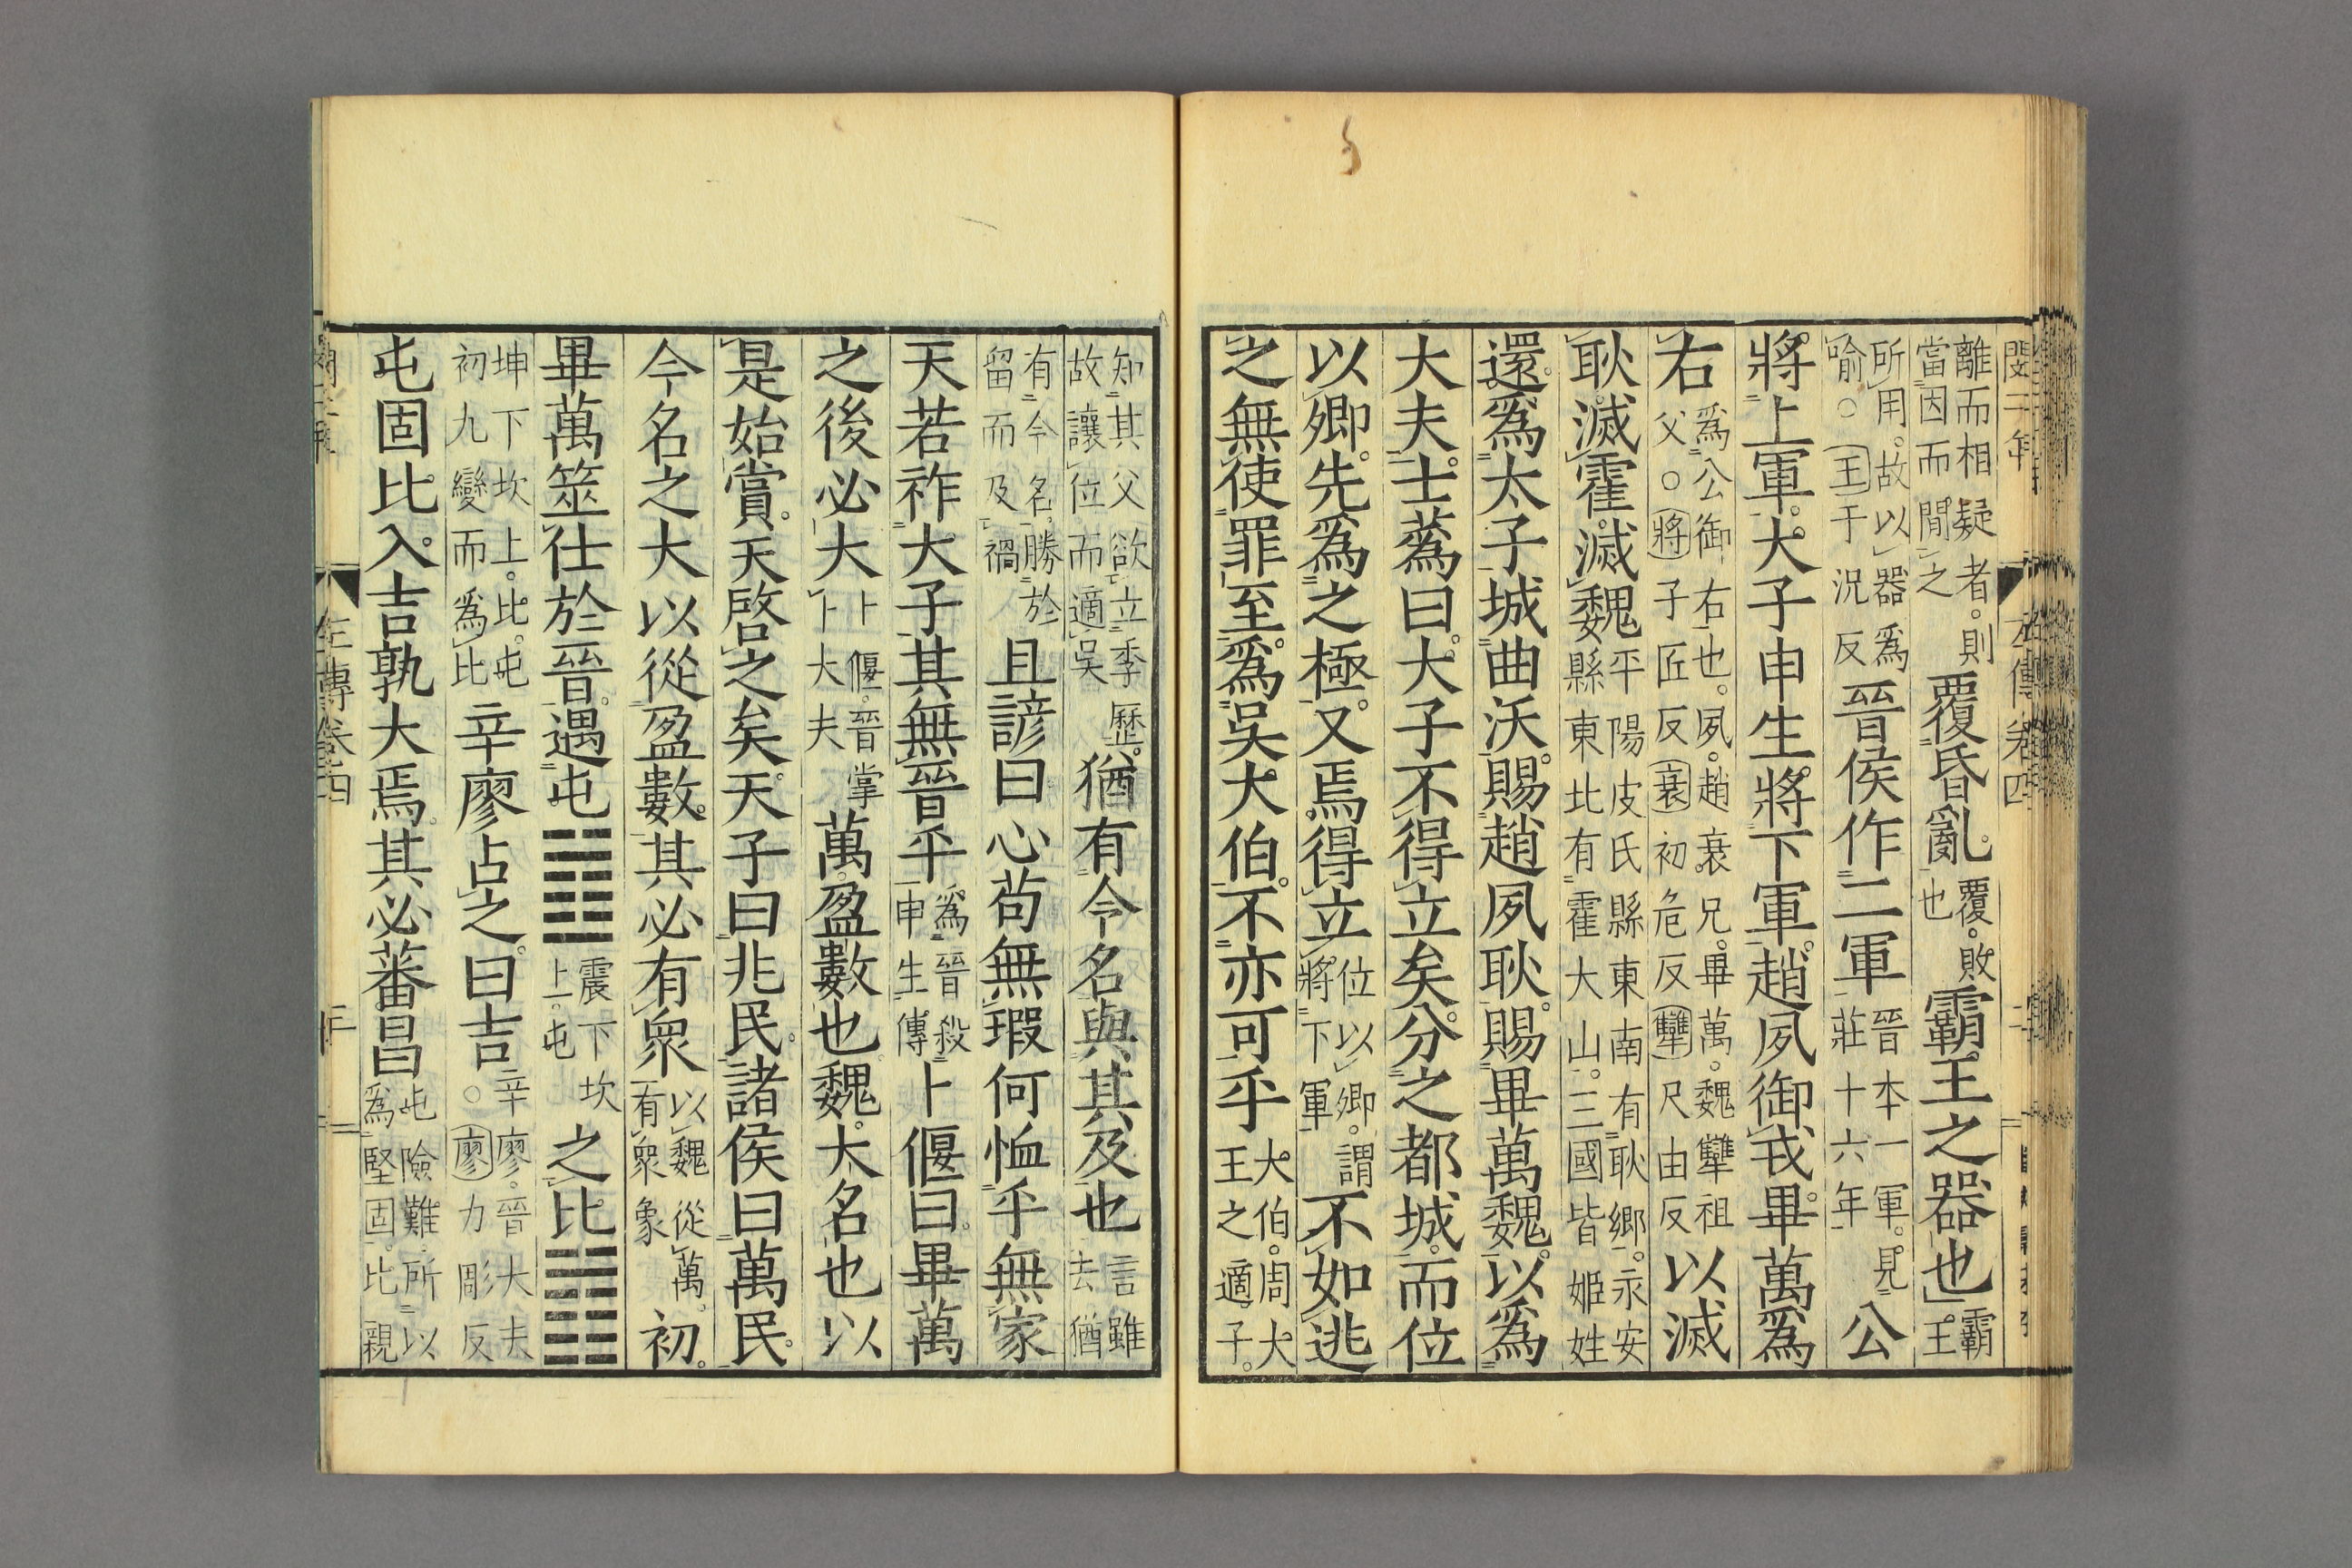 閔二年 左傳卷四 二
離而相疑者。則當因而間之覆昏亂。覆。敗也霸王之器也。霸王
所用。故以器爲喻。○王于況反晉侯作二軍晉本一軍。見莊十六年公
將上軍。大子申生。將下軍。趙夙御戎。畢萬爲
右爲公御右也。夙。趙衰兄。畢萬。魏犨祖父。○將子匠反衰初危反犨尺由反以滅
耿。滅霍。滅魏平陽皮氏縣東南有耿鄉。永安縣東北有霍大山。三國皆姬姓
還。爲太子城曲沃。賜趙夙耿。賜畢萬魏。以爲
大夫。士蔿曰。大子不得立矣。分之都城。而位
以卿。先爲之極。又焉得立位以卿。謂將下軍不如逃
之無使罪至。爲吳大伯。不亦可乎大伯。周大王之適子。
知其父欲立季歷。故讓位而適吳猶有令名與其及也言雖去猶
有令名。勝於留而及禍且諺曰心苟無瑕何恤乎無家
天若祚大子其無晉乎爲晉殺申生傳卜偃曰。畢萬
之後必大卜偃。晉掌卜大夫萬。盈數也。魏。大名也以
是始賞。天啓之矣。天子曰兆民。諸侯曰萬民。
今名之大以從盈數。其必有衆以魏從萬。有衆象初。
畢萬筮仕於晉。遇屯䷂震下坎上。屯之比䷇
坤下坎上。比。屯初九變而爲比辛廖占之。曰吉辛廖。晉大夫○廖力彫反
屯固比入。吉孰大焉。其必蕃昌屯險難。所以爲堅固。比親
左傳卷四